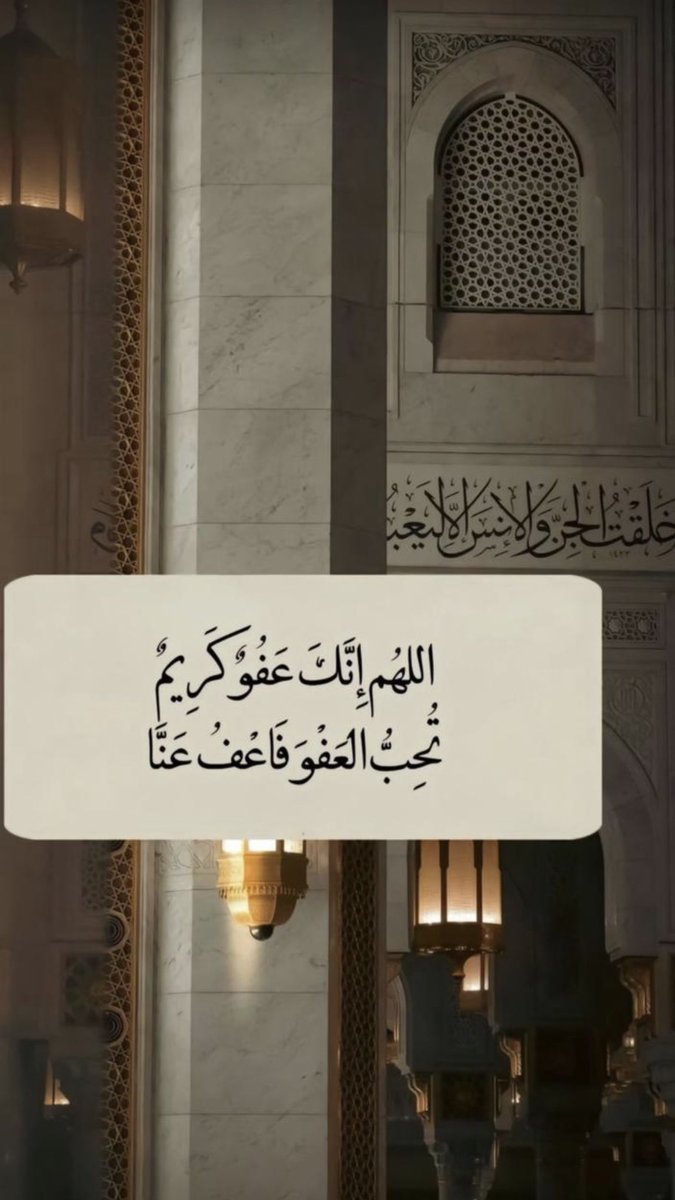 خَلَقْتُ الْجِنَّ وَالْإِنسَ إِلَّا لِيَعْبُ
اللهُم إِنَّكَ عَفُوٌ كَرِيمٌ
تُحِبُّ العَفْوَ فَاعْفُ عَنَّا